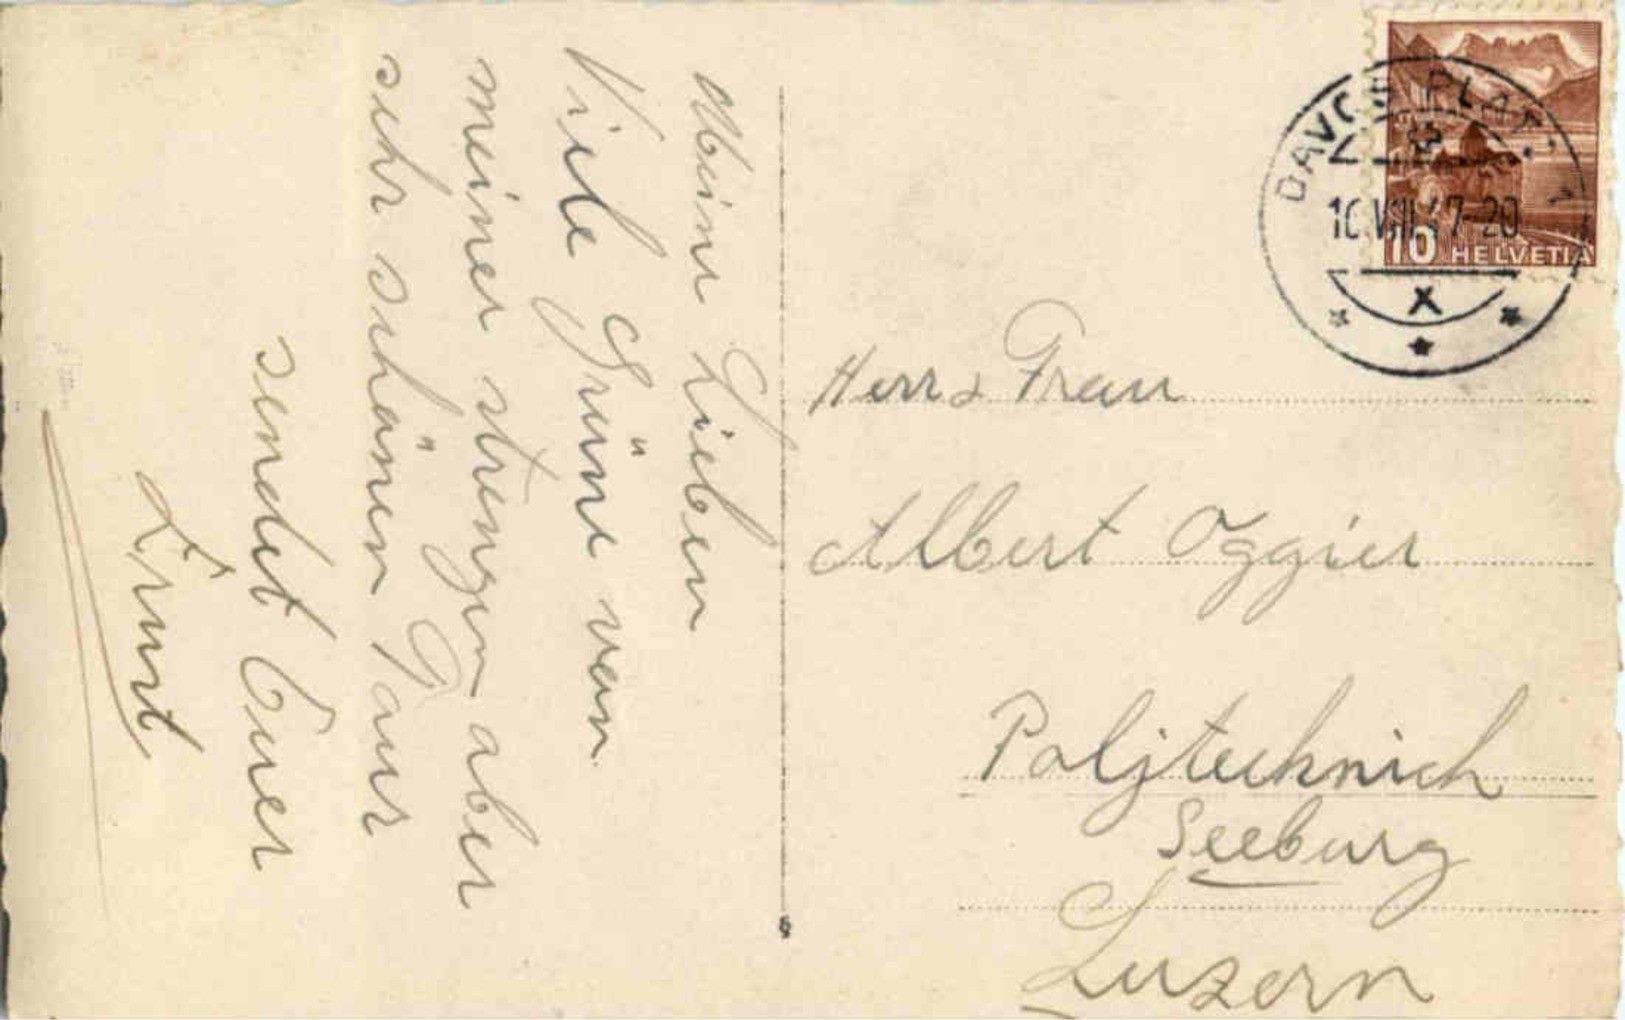 Meine Lieben
Viele Grüne von
meiner strengen aber
sehr schönen Tour
sendet Euer
Ernst
Herr & Frau
Albert Oggier
Poljtechnich
Seeburg
Luzern
DAVOS PLATZ 1
10.VIII.47-20
X
10 HELVETIA